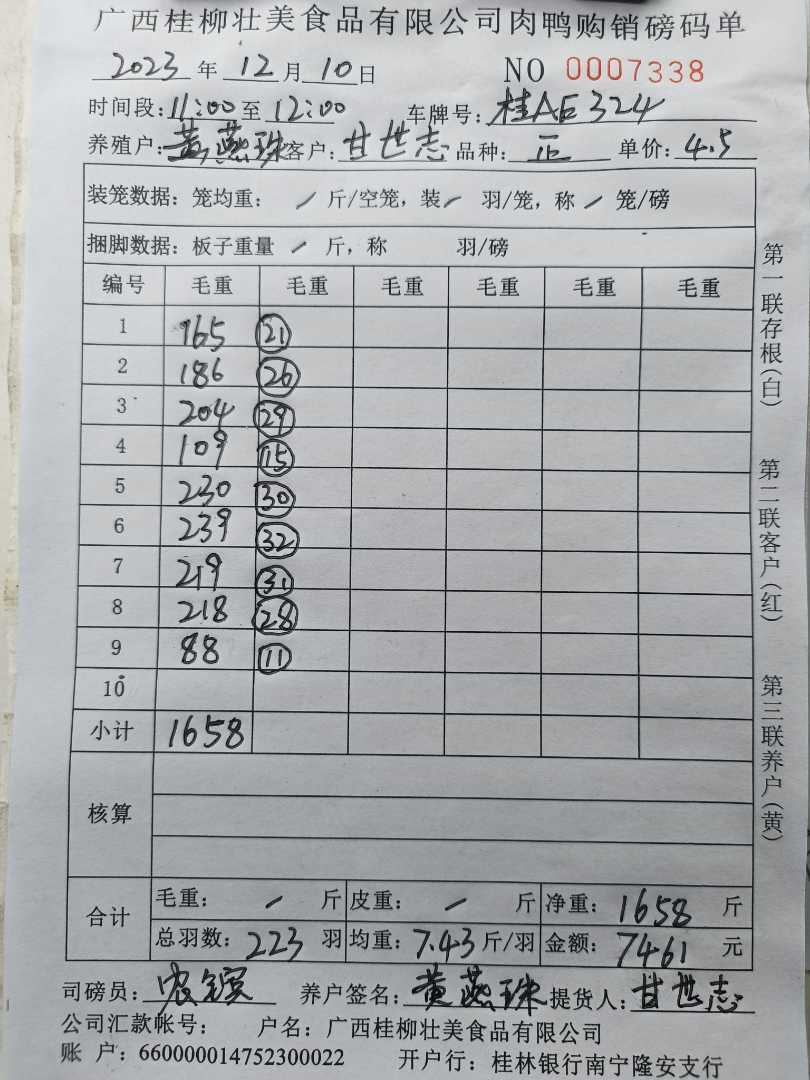 广西桂柳壮美食品有限公司肉鸭购销磅码单
2023 年 12 月 10 日 NO 0007338
时间段: 11:00 至 12:00 车牌号: 桂AE324
养殖户: 黄燕珠 客户: 甘世志 品种: 正 单价: 4.5
装笼数据: 笼均重: / 斤/空笼, 装 / 羽/笼, 称 / 笼/磅
捆脚数据: 板子重量 / 斤, 称 羽/磅
编号 毛重 毛重 毛重 毛重 毛重 毛重
1 165 21
2 186 26
3 204 29
4 109 15
5 230 30
6 239 32
7 219 31
8 218 28
9 88 11
10
小计 1658
核算
合计 毛重: / 斤 皮重: / 斤 净重: 1658 斤
总羽数: 223 羽 均重: 7.43 斤/羽 金额: 7461 元
司磅员: 养户签名: 黄燕珠 提货人: 甘世志
公司汇款帐号: 户名: 广西桂柳壮美食品有限公司
账 户: 660000014752300022 开户行: 桂林银行南宁隆安支行
第一联存根(白)
第二联客户(红)
第三联养户(黄)